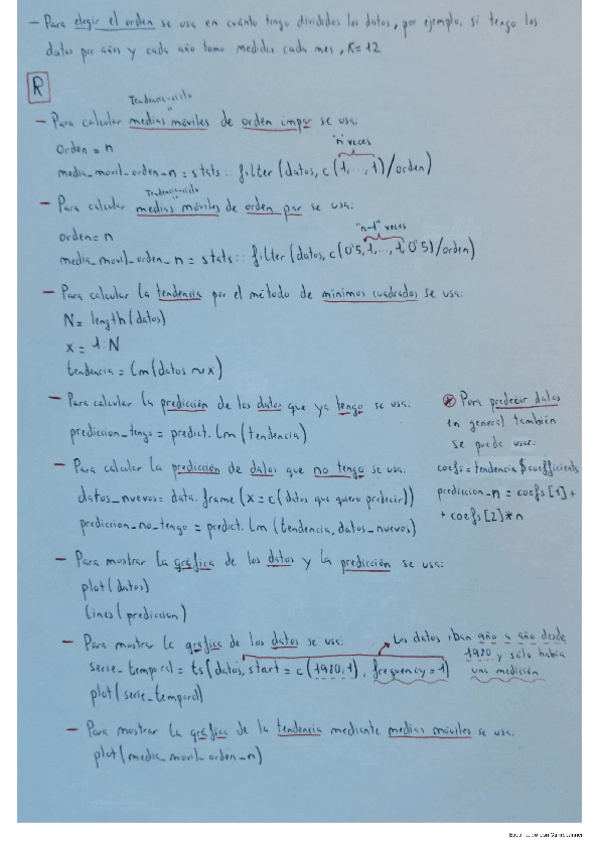 - Para elegir el orden se usa en cuánto tengo divididos los datos, por ejemplo, si tengo los
datos por años y cada año tomo medidas cada mes, K=12
R
Tendencia-ciclo
- Para calcular medias móviles de orden impar se usa:
"n" veces
orden = n
media_movil_orden_n = stats::filter(datos, c(1,...,1)/orden)
Tendencia-ciclo
- Para calcular medias móviles de orden par se usa:
"n-1" veces
orden = n
media_movil_orden_n = stats::filter(datos, c(0'5,1,...,1,0'5)/orden)
- Para calcular la tendencia por el método de mínimos cuadrados se usa:
N = length(datos)
x = 1:N
tendencia = lm(datos ~ x)
- Para calcular la predicción de los datos que ya tengo se usa:
prediccion_tengo = predict.lm(tendencia)
- Para calcular la predicción de datos que no tengo se usa:
datos_nuevos = data.frame(x = c(datos que quiero predecir))
prediccion_no_tengo = predict.lm(tendencia, datos_nuevos)
* Para predecir datos
en general también
se puede usar:
coefs = tendencia$coefficients
prediccion_n = coefs[1] +
+ coefs[2]*n
- Para mostrar la gráfica de los datos y la predicción se usa:
plot(datos)
lines(prediccion)
- Para mostrar la gráfica de los datos se usa:
serie_temporal = ts(datos, start = c(1980,1), frequency = 1)
plot(serie_temporal)
Los datos iban año a año desde
1980 y sólo había
una medición
- Para mostrar la gráfica de la tendencia mediante medias móviles se usa:
plot(media_movil_orden_n)